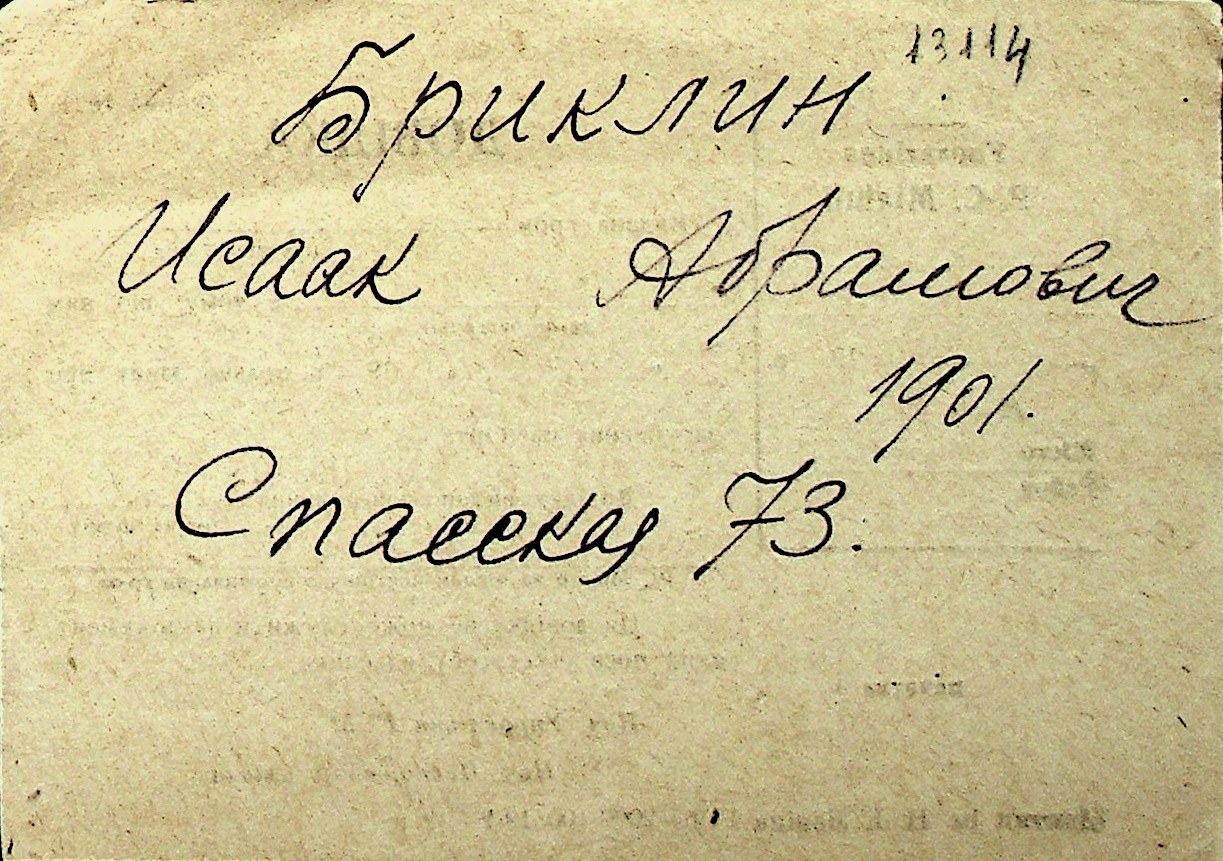 13114
Бриклин
Исаак Абрамович
1901.
Спасская 73.